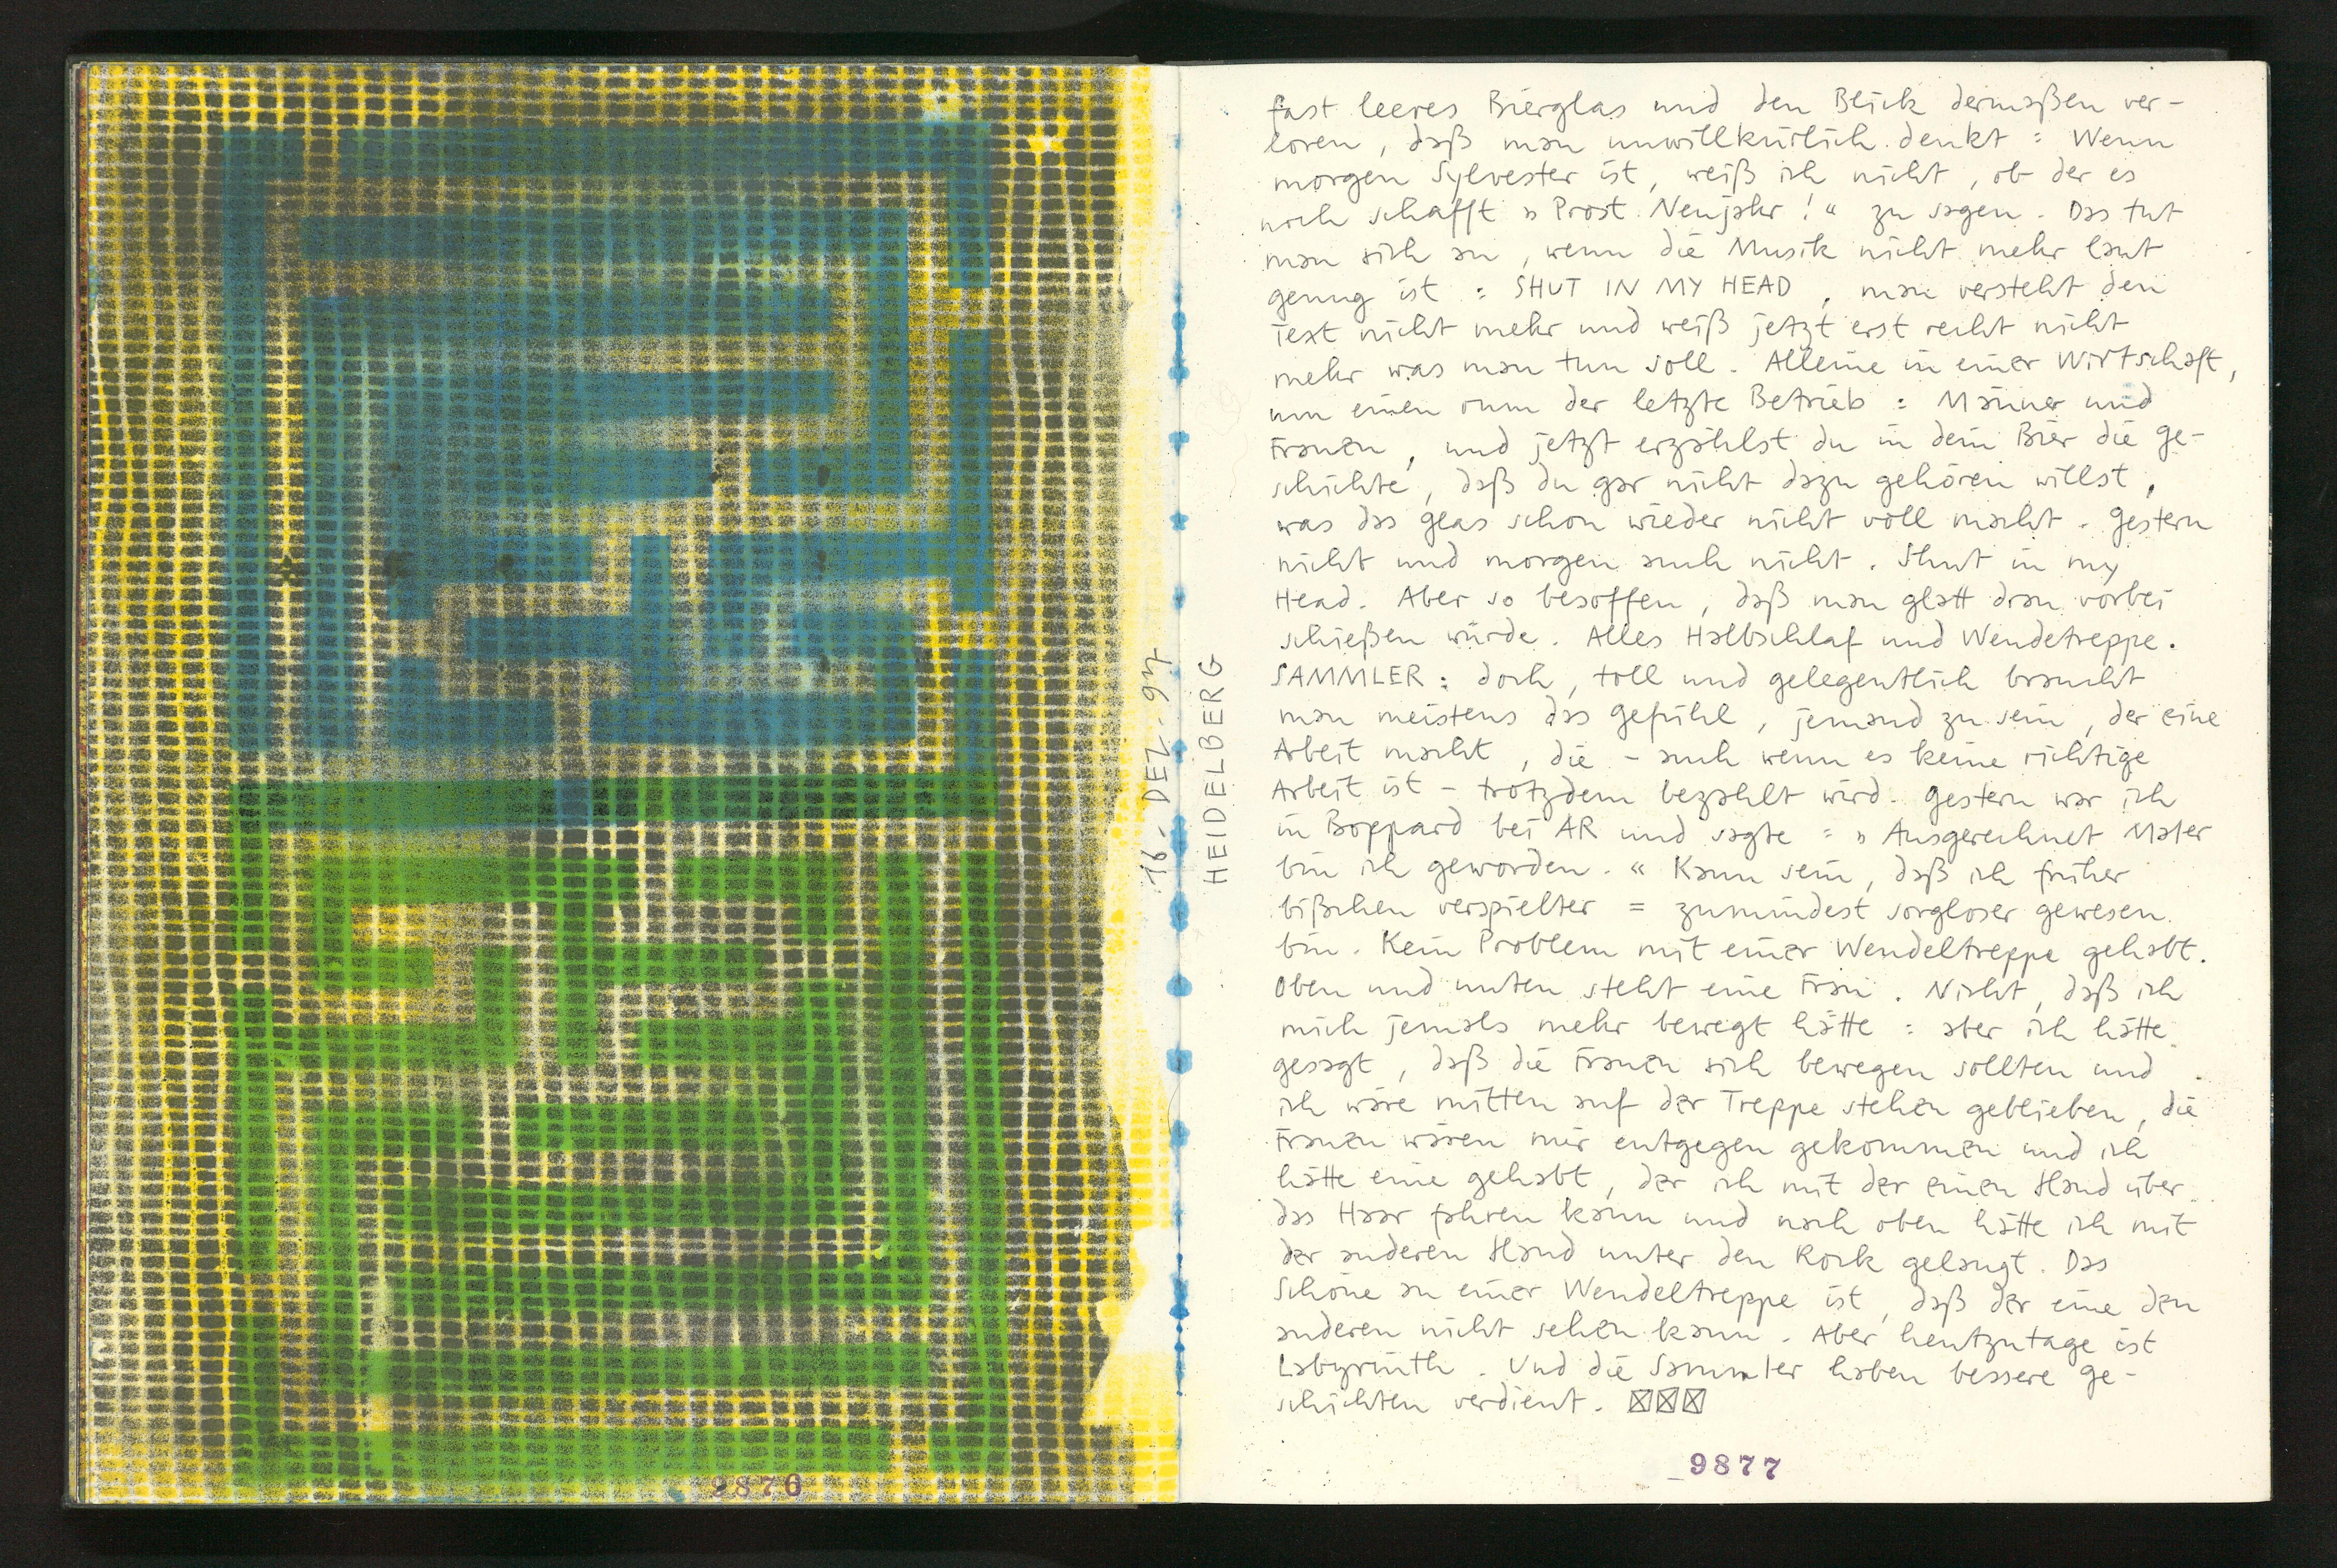 9876
16. DEZ. 97
HEIDELBERG
fast leeres Bierglas und den Blick dermaßen ver-
loren, daß man unwillkürlich denkt: Wenn
morgen Sylvester ist, weiß ich nicht, ob der es
noch schafft »Prost Neujahr!« zu sagen. Das tut
man sich an, wenn die Musik nicht mehr laut
genug ist: SHUT IN MY HEAD, man versteht den
Text nicht mehr und weiß jetzt erst recht nicht
mehr was man tun soll. Alleine in einer Wirtschaft,
um einen rum der letzte Betrieb: Männer und
Frauen, und jetzt erzählst du in dein Bier die Ge-
schichte, daß du gar nicht dazu gehören willst,
was das Glas schon wieder nicht voll macht. Gestern
nicht und morgen auch nicht. Shut in my
Head. Aber so besoffen, daß man glatt dran vorbei
schießen würde. Alles Halbschlaf und Wendetreppe.
SAMMLER: doch, toll und gelegentlich braucht
man meistens das Gefühl, jemand zu sein, der eine
Arbeit macht, die - auch wenn es keine richtige
Arbeit ist - trotzdem bezahlt wird. Gestern war ich
in Boppard bei AR und sagte: »Ausgerechnet Maler
bin ich geworden.« Kann sein, daß ich früher
bißchen verspielter = zumindest sorgloser gewesen
bin. Kein Problem mit einer Wendeltreppe gehabt.
Oben und unten steht eine Frau. Nicht, daß ich
mich jemals mehr bewegt hätte: aber ich hätte
gesagt, daß die Frauen sich bewegen sollten und
ich wäre mitten auf der Treppe stehen geblieben, die
Frauen wären mir entgegen gekommen und ich
hätte eine gehabt, der ich mit der einen Hand über
das Haar fahren kann und nach oben hätte ich mit
der anderen Hand unter den Rock gelangt. Das
Schöne an einer Wendeltreppe ist, daß der eine den
anderen nicht sehen kann. Aber heutzutage ist
Labyrinth. Und die Sammler haben bessere Ge-
schichten verdient. ☒☒☒
9877